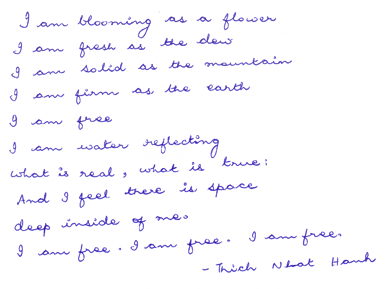 I am blooming as a flower
I am fresh as the dew
I am solid as the mountain
I am firm as the earth
I am free
I am water reflecting
what is real, what is true:
And I feel there is space
deep inside of me.
I am free. I am free. I am free.
- Thich Nhat Hanh